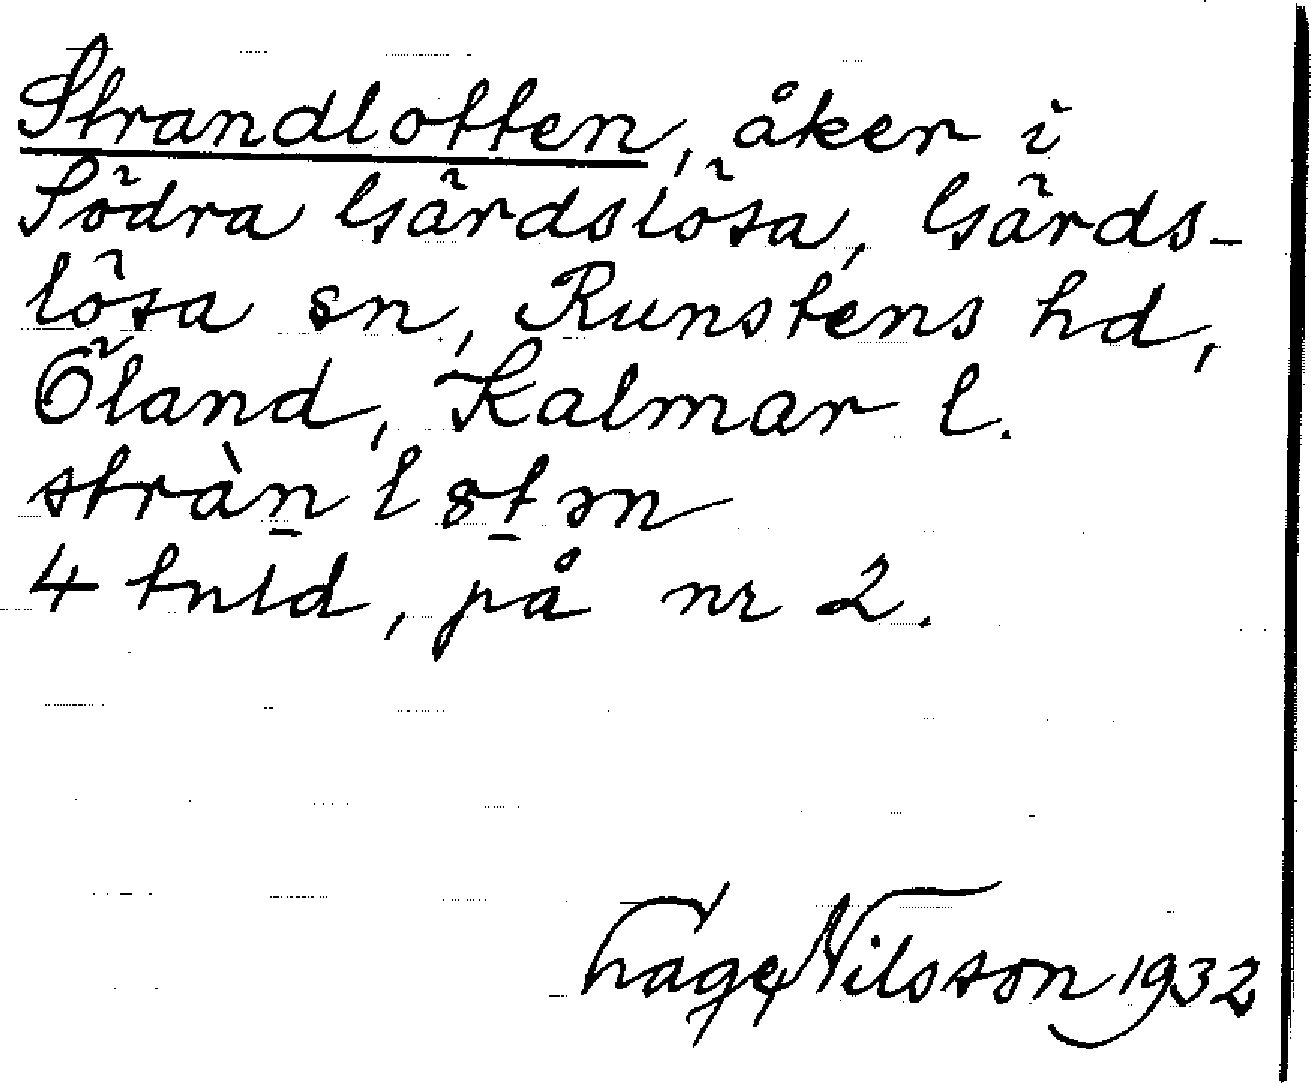 Strandlotten, åker i
Södra Gärdslösa, Gärds-
lösa sn, Runstens hd,
Öland, Kalmar l.
4 tnld, på nr 2.
Nilsson 1932